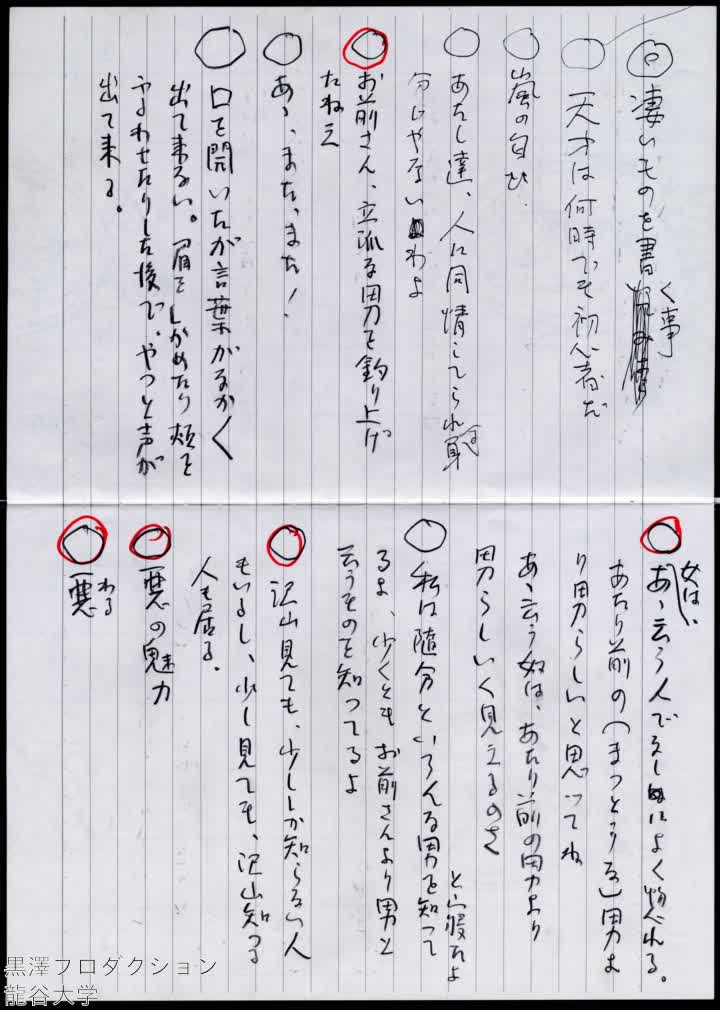 凄いものを書く事
天才は何時でも初心者だ
嵐の匂ひ
あたし達、人に同情してられる身
分じゃないわよ
お前さん、立派な男を釣り上げ
たねえ
あゝ、また、また！
口を開いたが言葉がなかく
出て来ない。眉をしかめたり頬を
ふるわせたりした後で、やつと声が
出て来る。
女は、あゝ云う人でなしによく惚れる。
あたり前の（まつとうな）男よ
り男らしいと思ってね
あゝ云う奴は、あたり前の男より
男らしく見えるのさ
私は随分といろんな男を知って
と寝たよ
るよ、少くともお前さんより男と
云うものを知つてるよ
沢山見ても、少ししか知らない人
もいるし、少し見ても、沢山知る
人も居る。
悪の魅力
悪
わる
黒澤プロダクション
龍谷大学